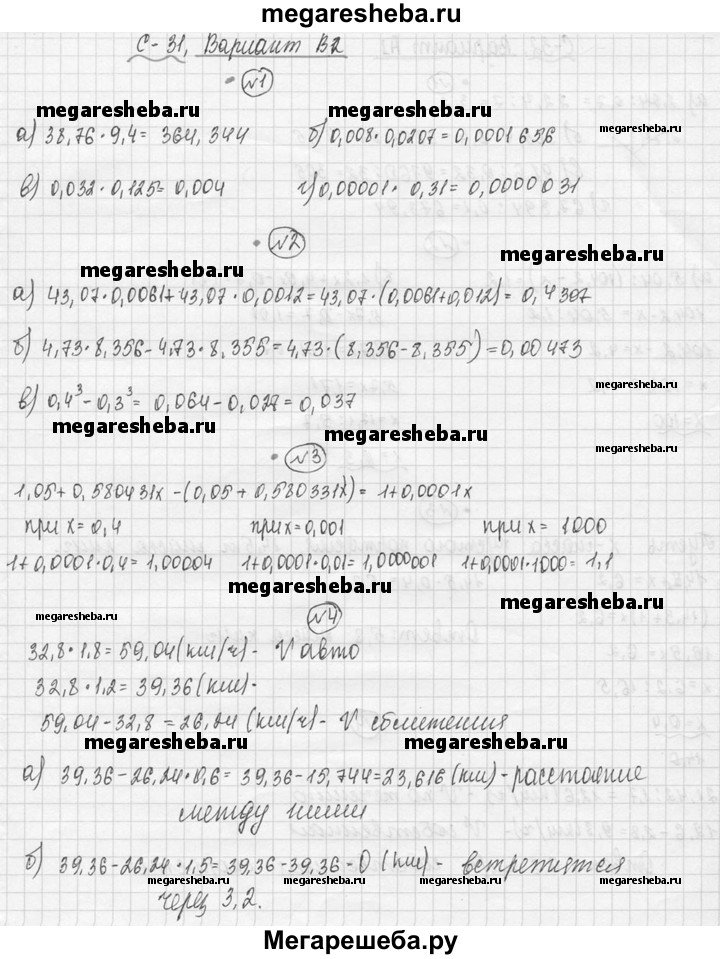 megaresheba.ru
С-31, Вариант В2
№1
megaresheba.ru megaresheba.ru
а) 38,76·9,4= 364,344 б) 0,008·0,0207=0,0001656
в) 0,032·0,125=0,004 г) 0,00001·0,31=0,0000031
№2
megaresheba.ru
megaresheba.ru
а) 43,07·0,0061+43,07·0,0012=43,07·(0,0061+0,012)=0,4307
б) 4,73·8,356-4,73·8,355=4,73·(8,356-8,355)=0,00473
megaresheba.ru
в) 0,4³-0,3³= 0,064-0,027=0,037
megaresheba.ru megaresheba.ru
№3
1,05+0,580431x-(0,05+0,580331x)=1+0,0001x
при x=0,4 при x=0,001 при x= 1000
1+0,0001·0,4=1,00004 1+0,0001·0,01=1,0000001 1+0,0001·1000=1,1
megaresheba.ru
megaresheba.ru
megaresheba.ru
№4
32,8·1,8=59,04(км/ч)- V авто
32,8·1,2=39,36(км)·
59,04-32,8=26,24(км/ч)- V сближения
megaresheba.ru megaresheba.ru
а) 39,36-26,24·0,6=39,36-15,744=23,616(км)-расстояние
между ними
б) 39,36-26,24·1,5=39,36-39,36-0 (км)- встретятся
megaresheba.ru megaresheba.ru megaresheba.ru
через 3,2.
Мегарешеба.ру